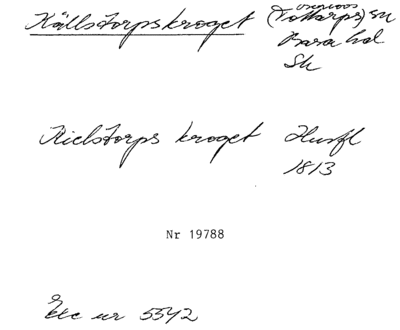 Källstorpskroget (Tottarps) sn
Bara hd
Sk
Kielstorps kroget Husfl
1813
Nr 19788
Etc nr 5542